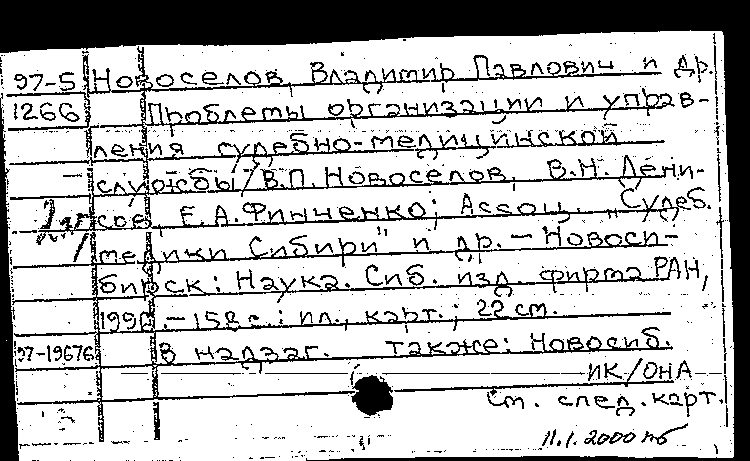 97-5 Новоселов, Владимир Павлович и др.
1266 Проблемы организации и управ-
ления судебно-медицинской
службы / В.П. Новоселов, В.Н. Дени-
сов, Е.А. Финченко; Ассоц. „Судеб.
медики Сибири" и др. — Новоси-
бирск: Наука. Сиб. изд. фирма РАН,
199 . — 158 с.: ил., карт.; 22 см.
97-19676 В надзаг. также: Новосиб.
ИК/ОНА
См. след. карт.
11.1.2000